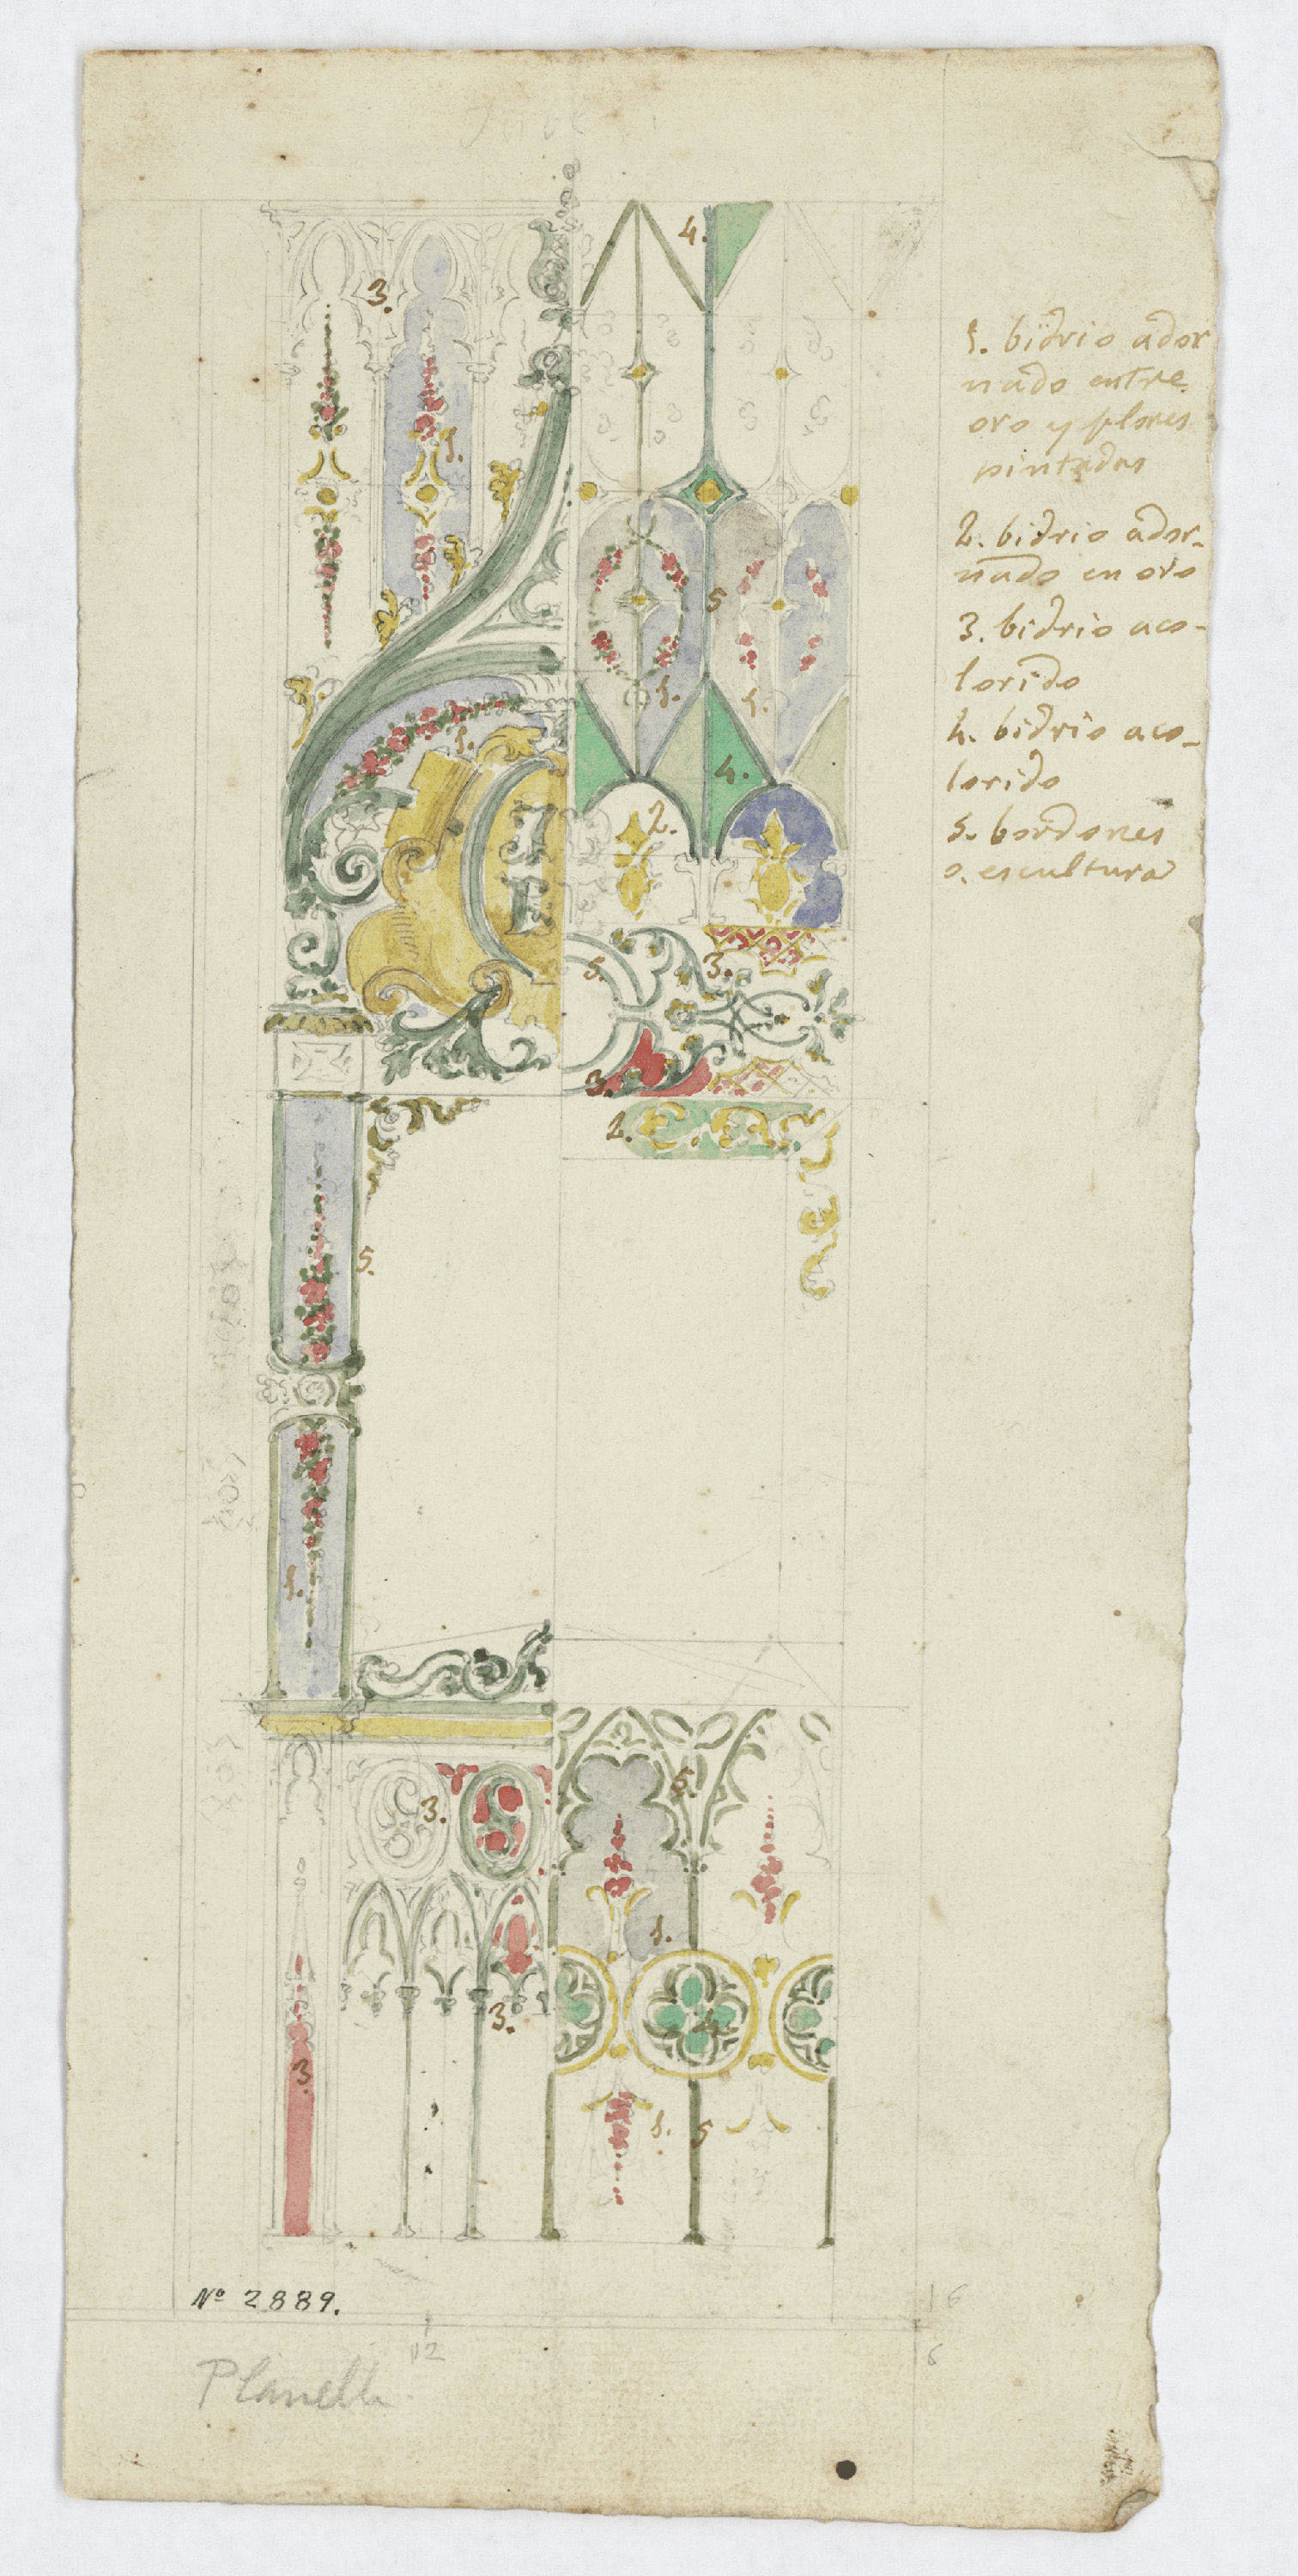 3.
4.
1.
5
1.
1.
1.
4.
2.
5.
3.
3.
2.
5.
1.
3.
5.
1.
3.
3
4
1.
5
1. bidrio ador
nado entre
oro y flores
pintadas
2. bidrio ador-
nado en oro
3. bidrio aco-
lorido
4. bidrio aco-
lorido
5. bordones
o. escultura
Nº 2889.
12
16
6
Planella